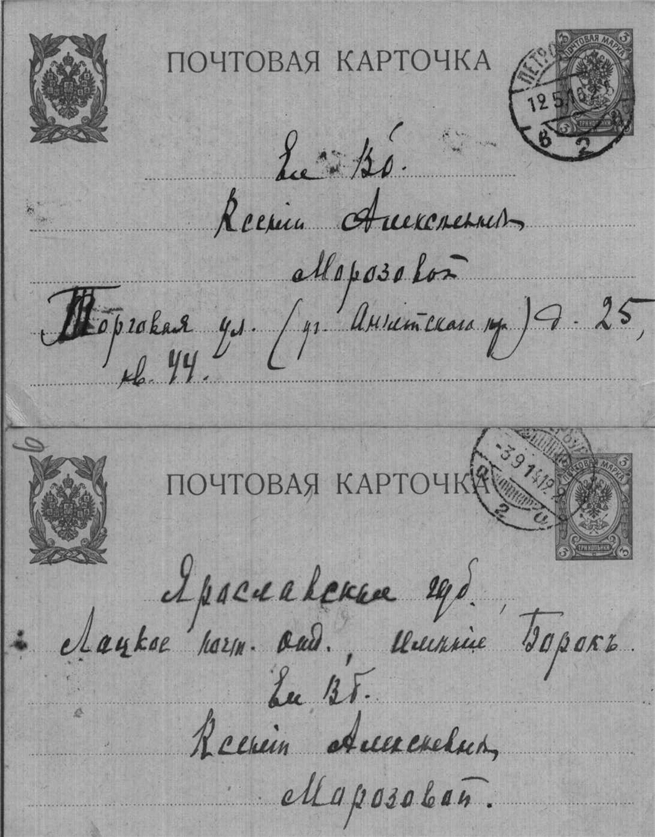 ПОЧТОВАЯ КАРТОЧКА
3
ПОЧТОВАЯ МАРКА
3 ТРИ КОПѢЙКИ 3
12.5.16
в 2
Ея Вб.
Ксеніи Алексѣевнѣ
Морозовой
Торговая ул. (уг. Англійскаго пр.) д. 25,
кв. 44.
ПОЧТОВАЯ КАРТОЧКА
3
ПОЧТОВАЯ МАРКА
3 ТРИ КОПѢЙКИ 3
-3.9.14.12
2
Ярославская губ.,
Лацкое почт. отд., имѣніе Борокъ.
Ея Вб.
Ксеніи Алексѣевнѣ
Морозовой.